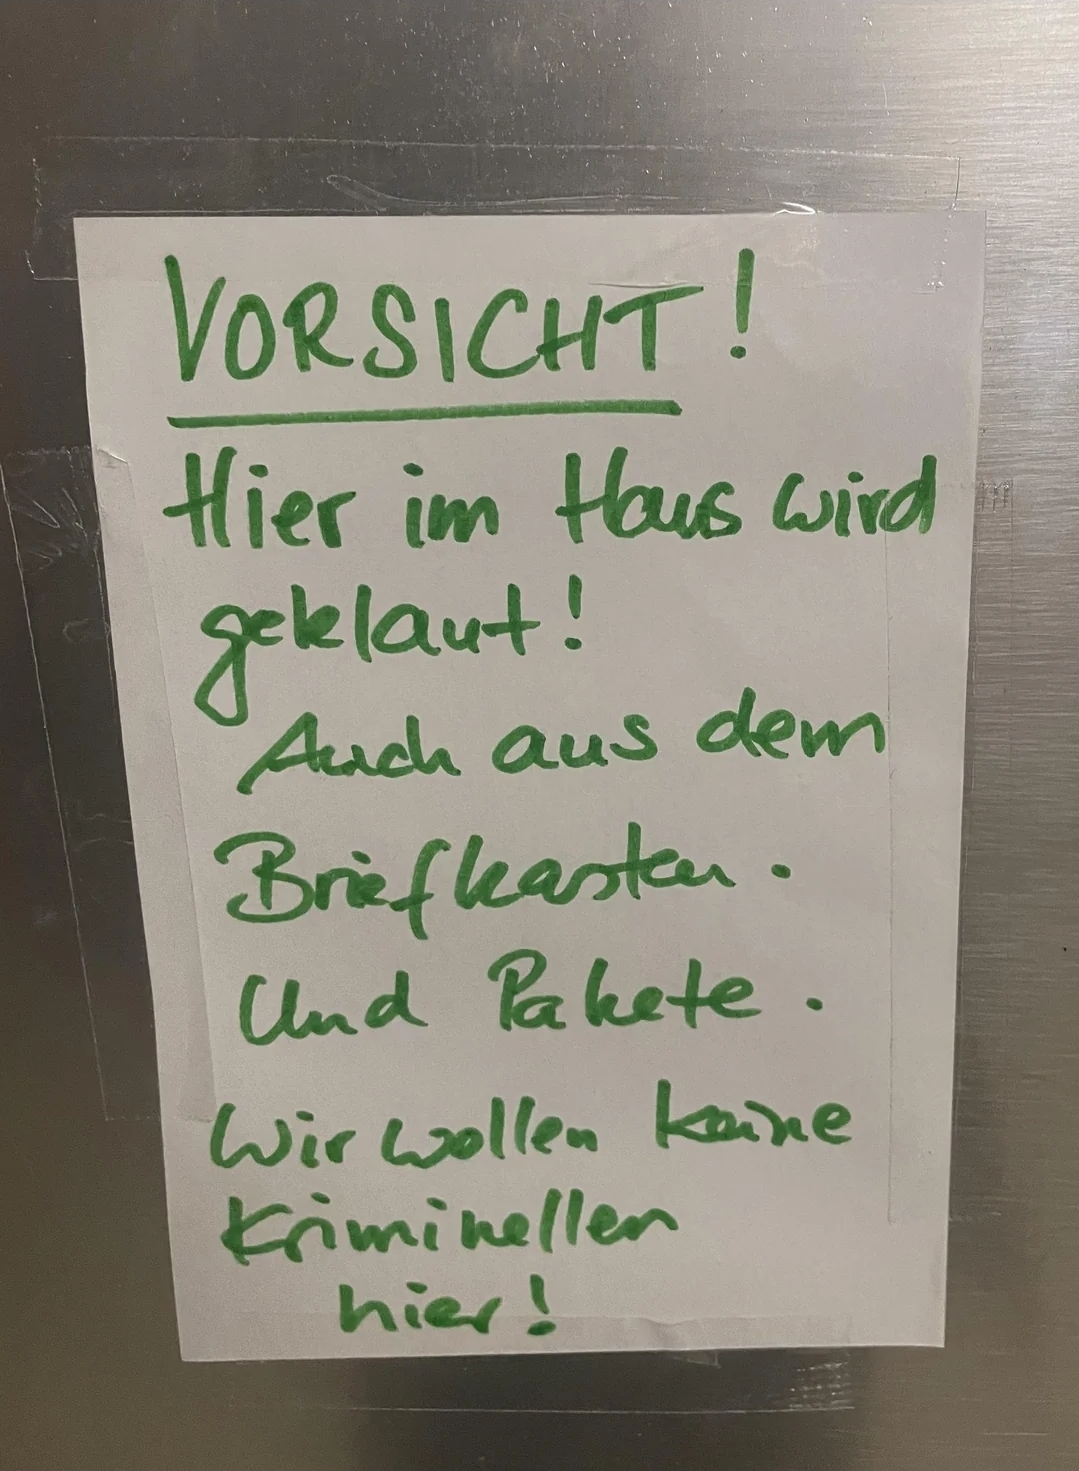 VORSICHT!
Hier im Haus wird
geklaut!
Auch aus dem
Briefkasten.
Und Pakete.
Wir wollen keine
Kriminellen
hier!